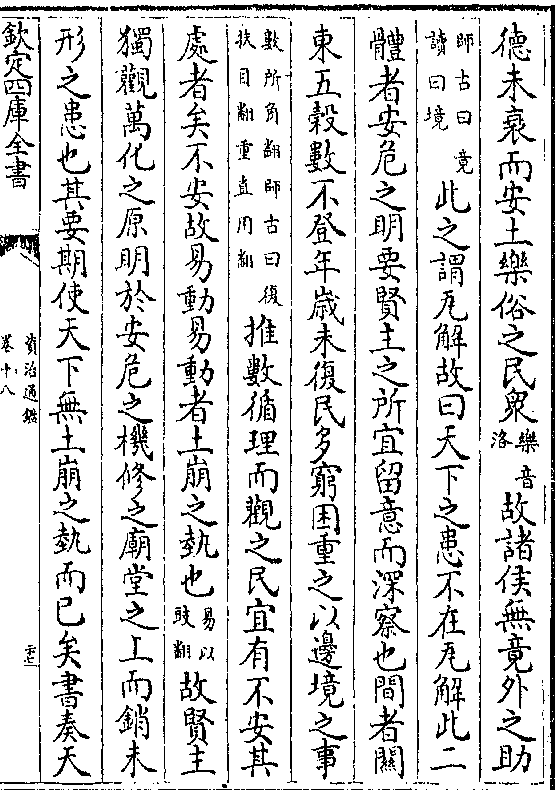 德未衰而安土樂俗之民衆樂音洛故諸侯無竟外之助
師古曰竟讀曰境此之謂瓦解故曰天下之患不在瓦解此二
體者安危之明要賢主之所宜留意而深察也間者關
東五穀數不登年歲未復民多窮困重之以邊境之事
數所角翻師古曰復扶目翻重直用翻推數循理而觀之民宜有不安其
處者矣不安故易動易動者土崩之埶也易以豉翻故賢主
獨觀萬化之原明於安危之機修之廟堂之上而銷未
形之患也其要期使天下無土崩之埶而已矣書奏天
欽定四庫全書
資治通鑑
卷十八